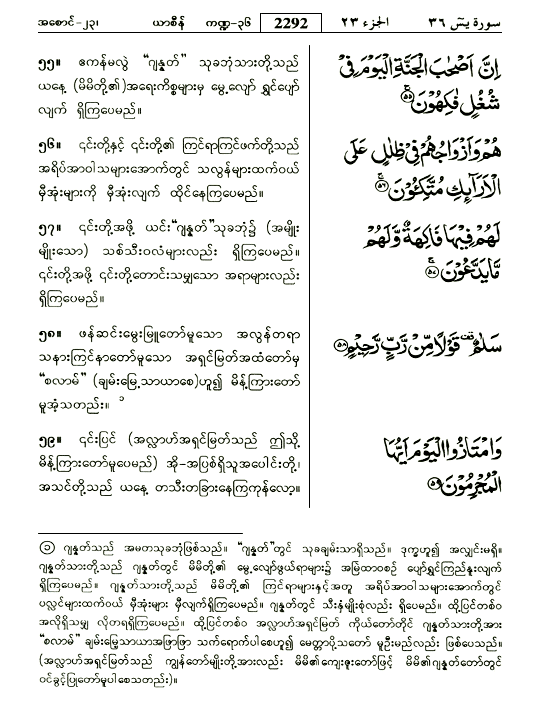 အစောင်-၂၃၊ ယာစီန် ကဏ္ဍ-၃၆ 2292 الجزء ٢٣ سورة يٰسٓ ٣٦
၅၅။ ဧကန်မလွဲ “ဂျန္နတ်” သုခဘုံသားတို့သည်
ယနေ့ (မိမိတို့၏)အရေးကိစ္စများမှ မွေ့လျော် ရွှင်ပျော်
လျက် ရှိကြပေမည်။
اِنَّ اَصْحٰبَ الْجَنَّةِ الْيَوْمَ فِيْ
شُغُلٍ فٰكِهُوْنَ ۝٥٥
၅၆။ ၎င်းတို့နှင့် ၎င်းတို့၏ ကြင်ရာကြင်ဖက်တို့သည်
အရိပ်အာဝါသများအောက်တွင် သလွန်များထက်ဝယ်
မှီအုံးများကို မှီအုံးလျက် ထိုင်နေကြပေမည်။
هُمْ وَاَزْوَاجُهُمْ فِيْ ظِلٰلٍ عَلَى
الْاَرَآئِكِ مُتَّكِـُٔوْنَ ۝٥٦
၅၇။ ၎င်းတို့အဖို့ ယင်း“ဂျန္နတ်”သုခဘုံ၌ (အမျိုး
မျိုးသော) သစ်သီးဝလံများလည်း ရှိကြပေမည်။
၎င်းတို့အဖို့ ၎င်းတို့တောင်းသမျှသော အရာများလည်း
ရှိကြပေမည်။
لَهُمْ فِيْهَا فَاكِهَةٌ وَّلَهُمْ
مَّا يَدَّعُوْنَ ۝٥٧
၅၈။ ဖန်ဆင်းမွေးမြူတော်မူသော အလွန်တရာ
သနားကြင်နာတော်မူသော အရှင်မြတ်အထံတော်မှ
“စလာမ်” (ချမ်းမြေ့သာယာစေ)ဟူ၍ မိန့်ကြားတော်
မူအံ့သတည်း။ ၁
سَلٰمٌ ۣ قَوْلًا مِّنْ رَّبٍّ رَّحِيْمٍ ۝٥٨
၅၉။ ၎င်းပြင် (အလ္လာဟ်အရှင်မြတ်သည် ဤသို့
မိန့်ကြားတော်မူပေမည်) အို-အပြစ်ရှိသူအပေါင်းတို့၊
အသင်တို့သည် ယနေ့ တသီးတခြားနေကြကုန်လော့။
وَامْتَازُوا الْيَوْمَ اَيُّهَا
الْمُجْرِمُوْنَ ۝٥٩
(၁) ဂျန္နတ်သည် အမတသုခဘုံဖြစ်သည်။ “ဂျန္နတ်”တွင် သုခချမ်းသာရှိသည်။ ဒုက္ခဟူ၍ အလျှင်းမရှိ။
ဂျန္နတ်သားတို့သည် ဂျန္နတ်တွင် မိမိတို့၏ မွေ့လျော်ဖွယ်ရာများ၌ အမြဲထာဝစဉ် ပျော်ရွှင်ကြည်နူးလျက်
ရှိကြပေမည်။ ဂျန္နတ်သားတို့သည် မိမိတို့၏ ကြင်ရာများနှင့်အတူ အရိပ်အာဝါသများအောက်တွင်
ပလ္လင်များထက်ဝယ် မှီအုံးများ မှီလျက်ရှိကြပေမည်။ ဂျန္နတ်တွင် သီးနှံမျိုးစုံလည်း ရှိပေမည်။ ထို့ပြင်တစ်ဝ
အလိုရှိသမျှ လိုတရရှိကြပေမည်။ ထို့ပြင်တစ်ဝ အလ္လာဟ်အရှင်မြတ် ကိုယ်တော်တိုင် ဂျန္နတ်သားတို့အား
“စလာမ်” ချမ်းမြေ့သာယာအဖြာဖြာ သက်ရောက်ပါစေဟူ၍ မေတ္တာပို့သတော် မူဦးမည်လည်း ဖြစ်ပေသည်။
(အလ္လာဟ်အရှင်မြတ်သည် ကျွန်တော်မျိုးတို့အားလည်း မိမိ၏ကျေးဇူးတော်ဖြင့် မိမိ၏ဂျန္နတ်တော်တွင်
ဝင်ခွင့်ပြုတော်မူပါစေသတည်း)။